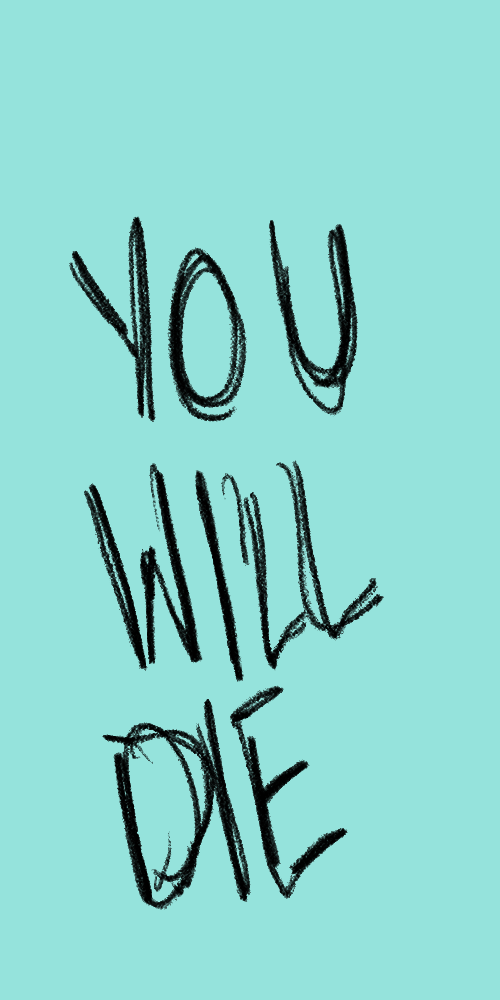 YOU
WILL
DIE